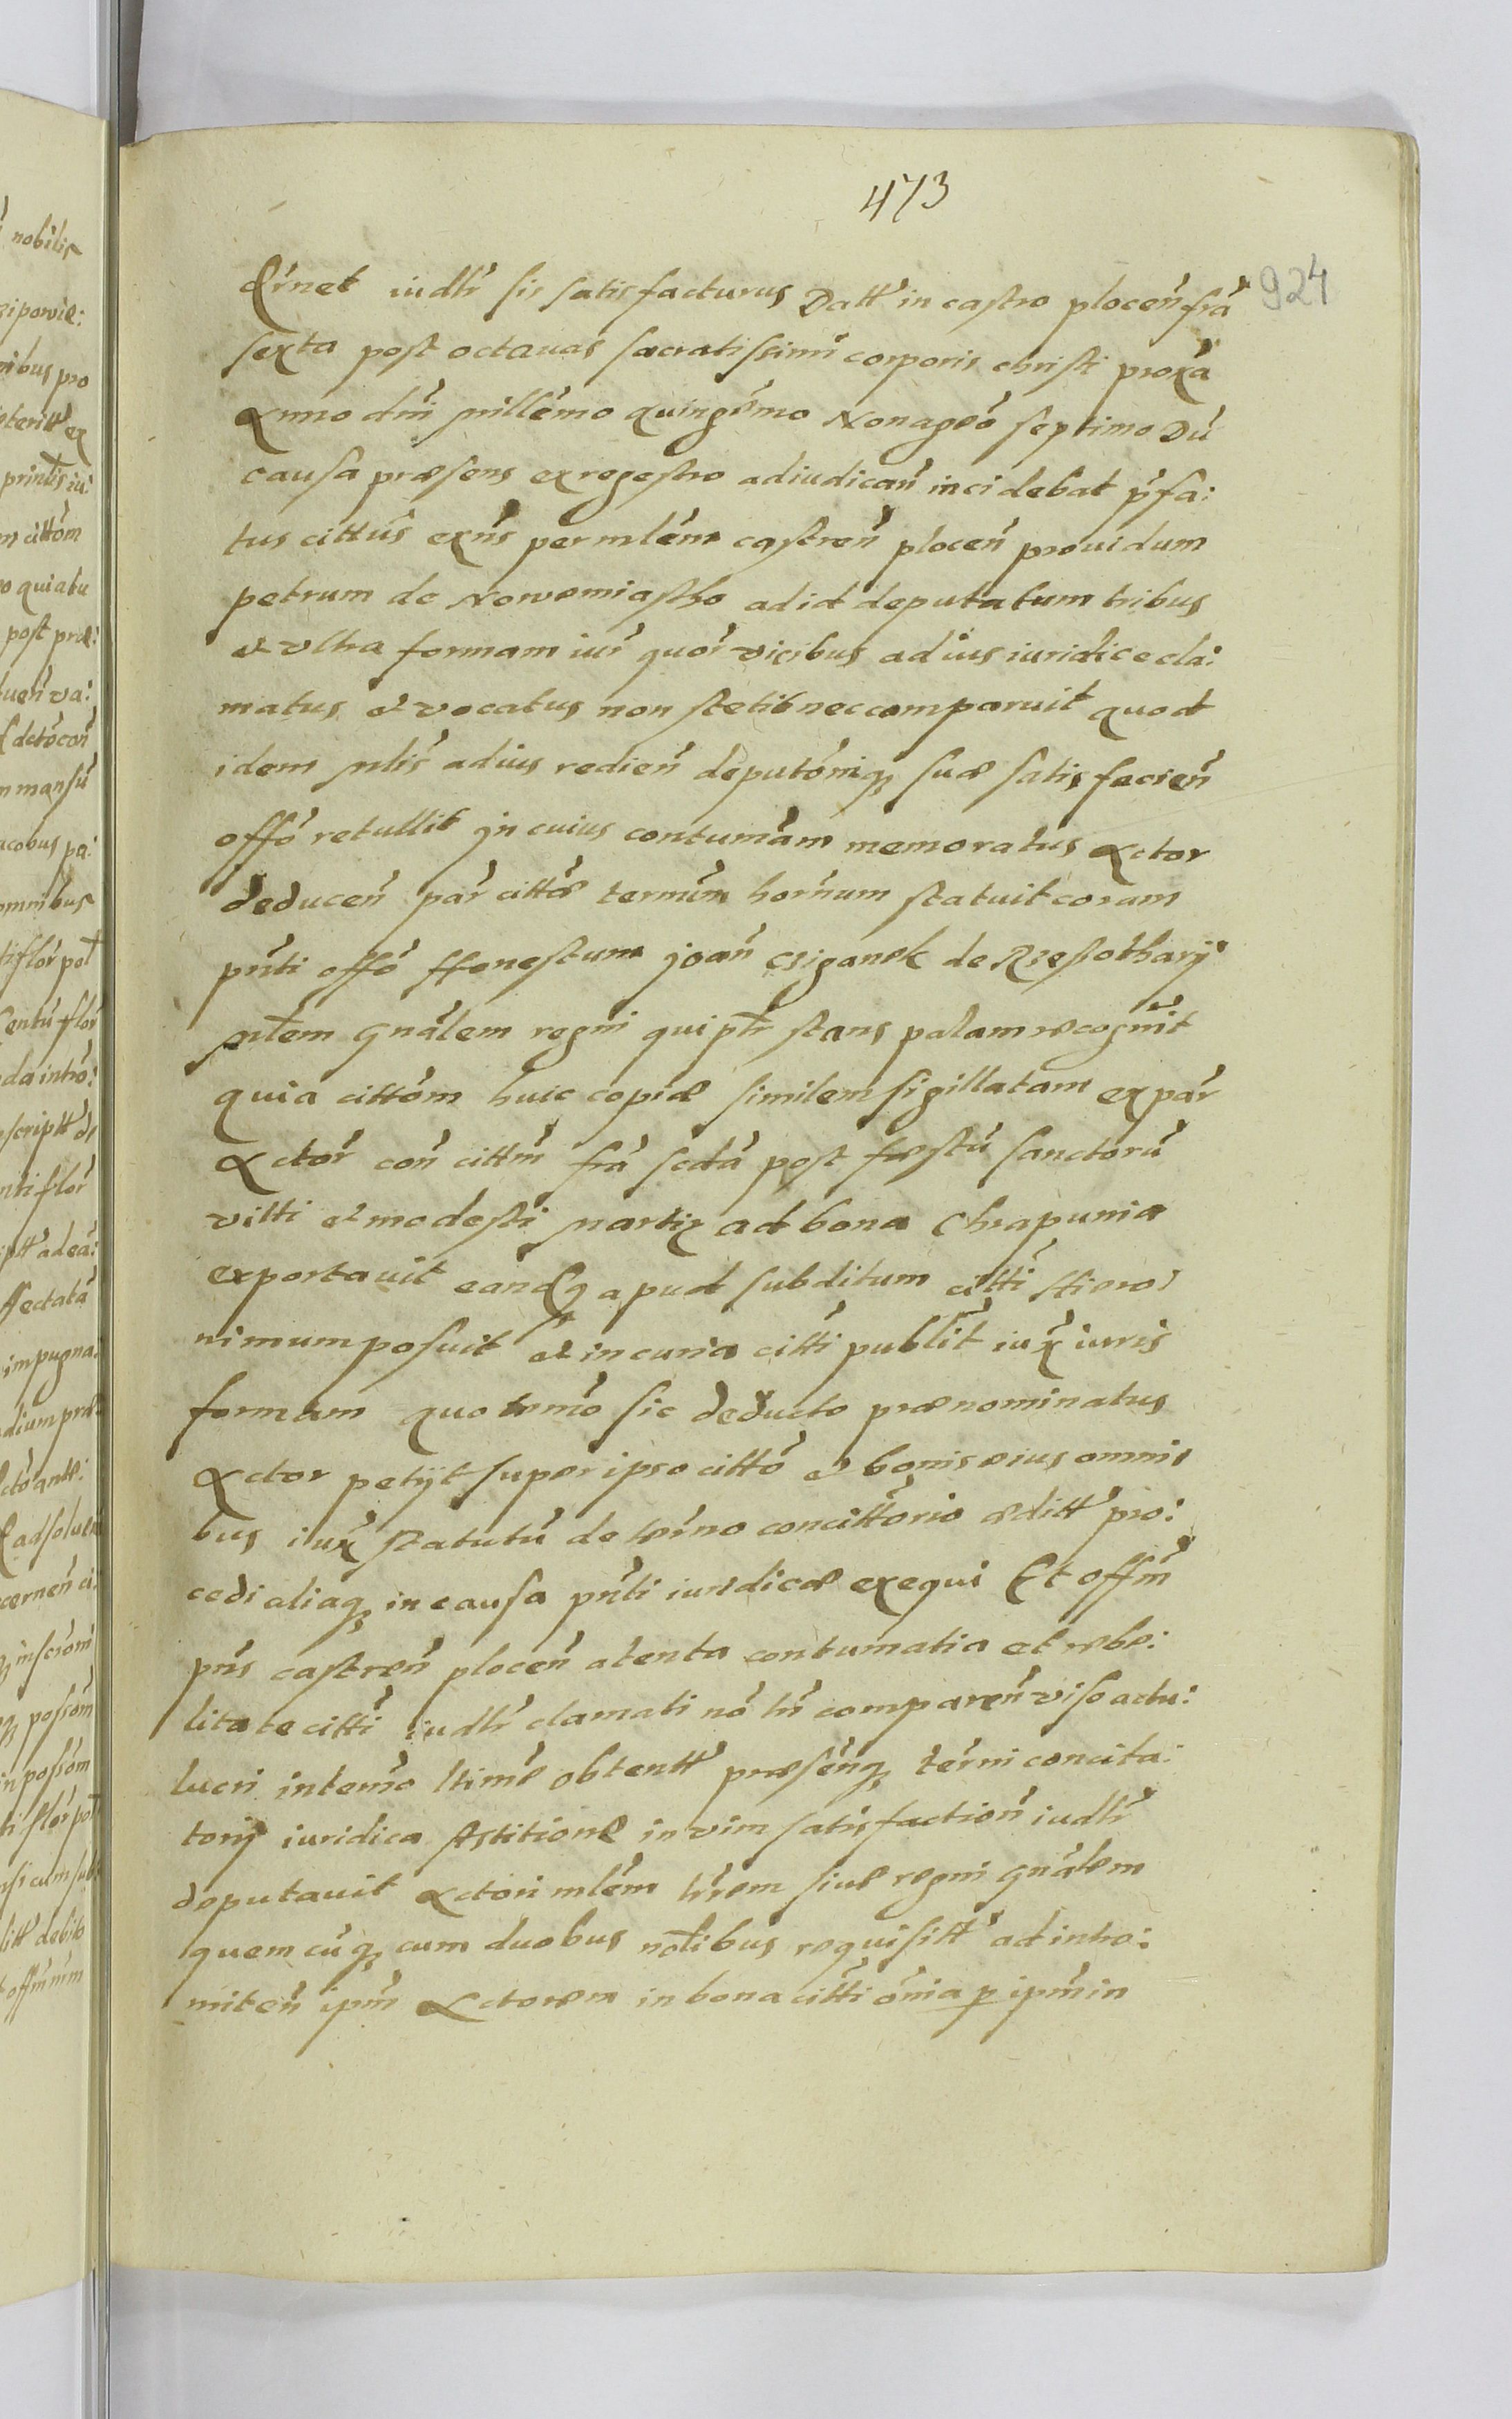 473
924
Ernet iudlr sis satisfacturus Datt in castro plocen fra
sexta post octauas sacratissimi corporis christi proxa
Anno dni millemo quingemo Nonageo septimo Du
causa præsens ex regestro adiudican incidebat pfa:
tus cittus exns per mlem castren plocen prouidum
petrum de Nowemiastho ad id deputatum tribus
et vltra formam iur quor vicibus ad ius iuridice cla:
matus et vocatus non stetit nec comparuit quod
idem mlis ad ius redien deputoniq suæ satisfacien
offo retullit jn cuius contumam memoratus Actor
deducen par cittæ termin hornum statuit coram
pnti offo honestum joan csiganek de Rzeszothary
mlem gnalem regni qui ptr stans palam recognit
quia cittom huic copiæ similem sigillatam ex par
Actor con cittm fra scda post festu sanctoru
vitti et modesti martiz ad bona Chrapunia
exportauit eandq apud subditum citti Hiero:
nimum posuit et in curia citti publit iux iuris
formam quo termo sic deducto prænominatus
Actor petijt super ipso citto et bonis eius omni:
bus iux statutu de terno concittorio æditt pro:
cedi aliaq in causa pnti iuridicæ exequi Et offm
pns castren plocen atenta contumatia et rebe:
litate citti iudlr clamati no tn comparen viso actu:
lucri in termo ltime obtentt præsenq terni concita:
torij iuridica Astitione in vim satisfaction iudlr
deputauit Actori mlem trrem siue regni gnalem
quem cuq cum duobus nolibus requisitt ad intro:
miten ipm Actorem in bona citti omia p ipm in
nobilis
mibus pro
quiatu
acobus pa:
omnibus
impugna: